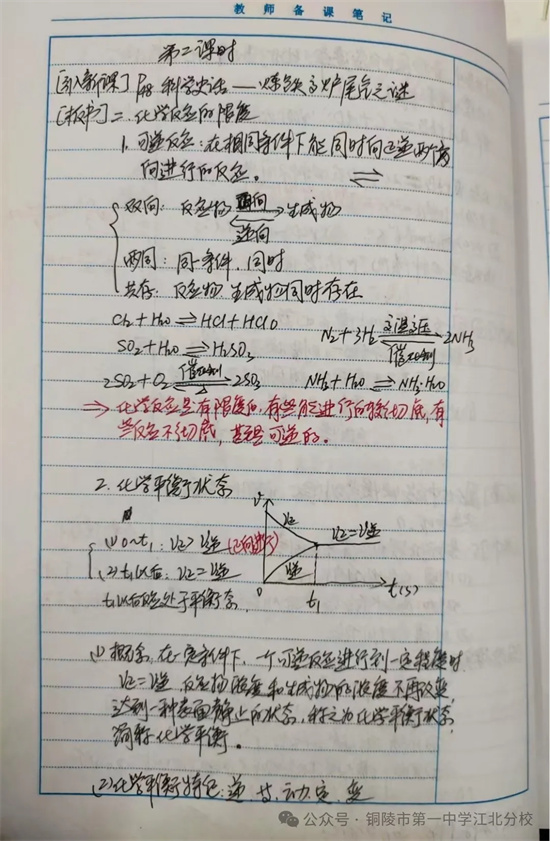 教师备课笔记
第二课时
[引入新课] 科学史话——炼铁高炉尾气之谜
[板书] 二、化学反应的限度
1. 可逆反应：在相同条件下能同时向正逆两个方
向进行的反应。 ⇌
双向：反应物 正向 生成物
逆向
两同：同一条件，同时
共存：反应物 生成物同时存在
Cl₂+H₂O⇌HCl+HClO
N₂+3H₂ 高温高压 催化剂 2NH₃
SO₂+H₂O⇌H₂SO₃
2SO₂+O₂ 催化剂 2SO₃
NH₃+H₂O⇌NH₃·H₂O
⇒化学反应是有限度的，有些能进行的较彻底，有
些反应不彻底，甚至是可逆的。
2. 化学平衡状态
v
V正
V正=V逆
V逆
0
t₁
t(s)
(1) 0~t₁：V正>V逆
(2) t₁以后：V正=V逆
t₁以后反应处于平衡态
(1) 概念：在一定条件下，一个可逆反应进行到一定程度时
V正=V逆，反应物浓度和生成物的浓度不再改变
达到一种表面静止的状态，称之为化学平衡状态，
简称化学平衡。
(2) 化学平衡特征：逆、等、动、定、变
公众号·铜陵市第一中学江北分校